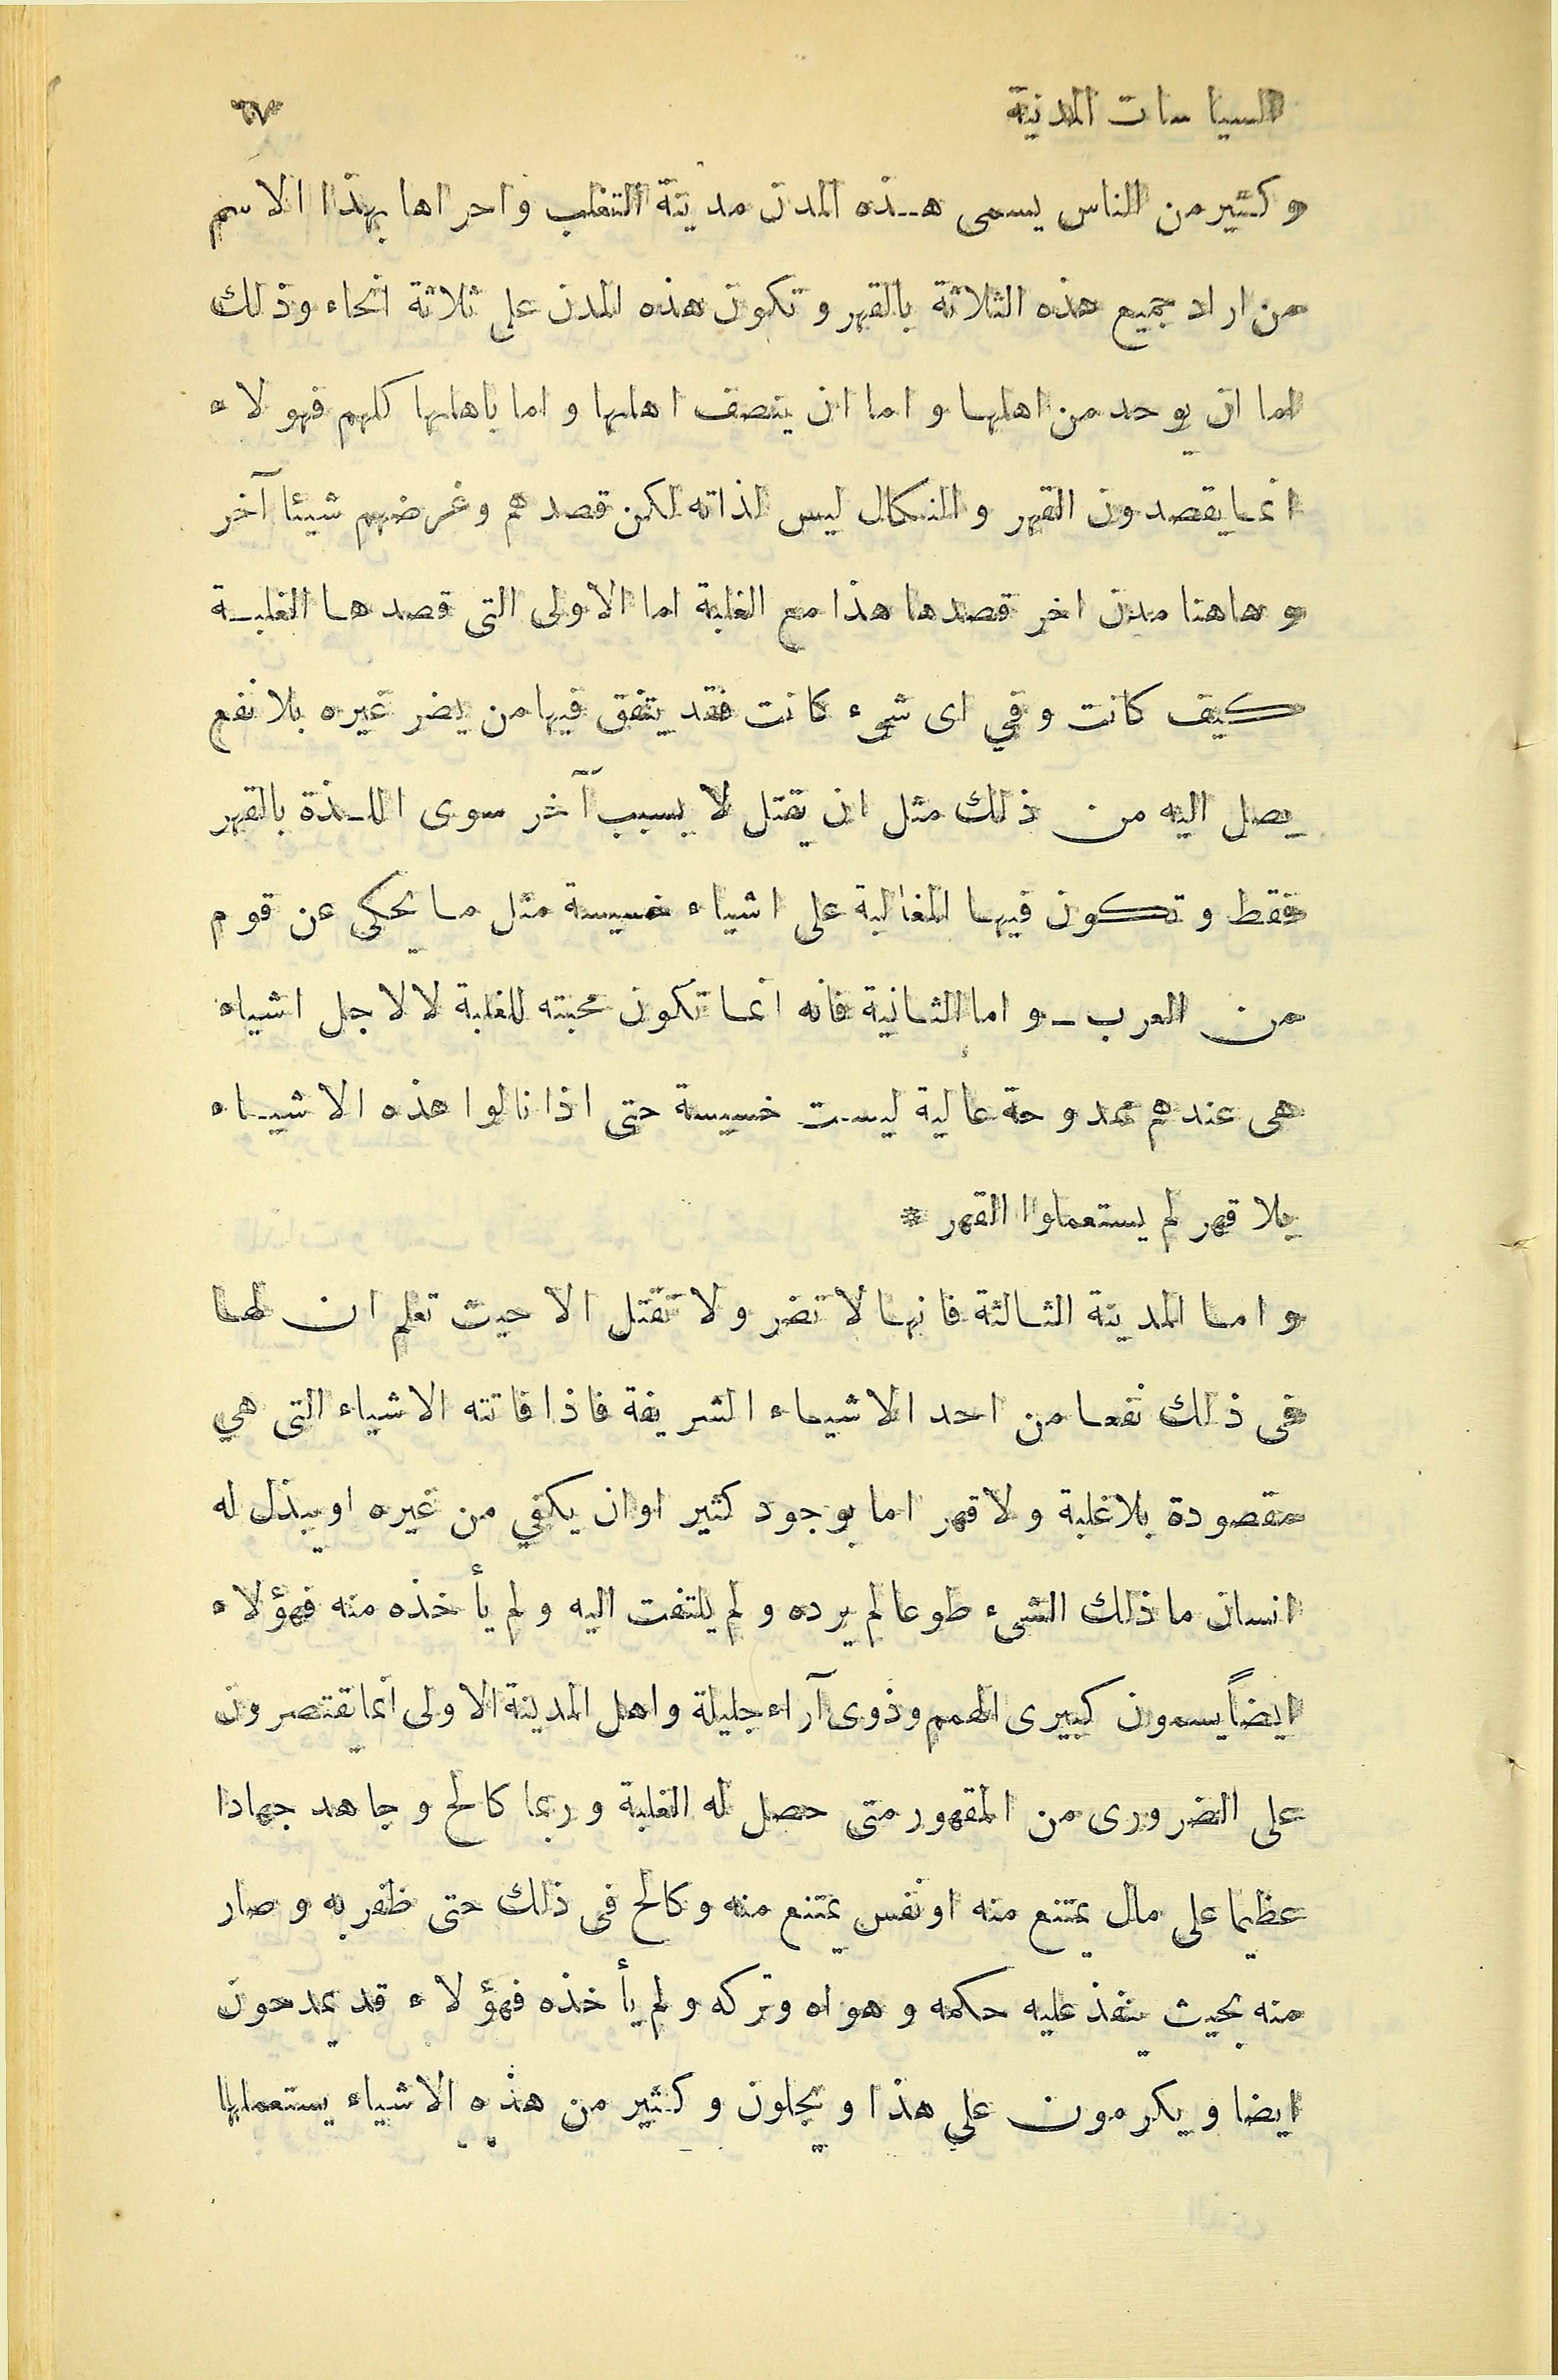 السياسات المدنية ٦٧
وكثير من الناس يسمى هذه المدن مدينة التغلب واحراها بهذا الاسم
من اراد جميع هذه الثلاثة بالقهر وتكون هذه المدن على ثلاثة انحاء وذلك
اما ان يوحد من اهلها و اما ان ينصف اهلها و اما باهلها كلهم فهولاء
انما يقصدون القهر و النكال ليس لذاته لكن قصدهم وغرضهم شيئا آخر
و هاهنا مدن اخر قصدها هذا مع الغلبة اما الاولى التى قصدها الغلبة
كيف كانت وفي اى شىء كانت فقد يتفق فيها من يضر غيره بلا نفع
يصل اليه من ذلك مثل ان يقتل لا بسبب آخر سوى اللذة بالقهر
فقط و تكون فيها المغالبة على اشياء خسيسة مثل ما يحكى عن قوم
من العرب ـ و اما الثانية فانه انما تكون محبته للغلبة لا لاجل اشياء
هى عندهم ممدوحة عالية ليست خسيسة حتى اذا نالوا هذه الاشياء
بلا قهر لم يستعملوا القهر *
و اما المدينة الثالثة فانها لا تضر ولا تقتل الا حيث تعلم ان لها
فى ذلك نفعا من احد الاشياء الشريفة فاذا فاتته الاشياء التى هي
مقصودة بلا غلبة ولا قهر اما بوجود كثير او ان يكفي من غيره او يبذل له
انسان ما ذلك الشىء طوعا لم يرده ولم يلتفت اليه ولم يأخذه منه فهؤلاء
ايضاً يسمون كبيرى الهمم وذوى آراء جليلة واهل المدينة الاولى انما يقتصرون
على الضرورى من المقهور متى حصل له الغلبة وربما كالح وجاهد جهادا
عظيما على مال يمتنع منه او نفس يمتنع منه وكالح فى ذلك حتى ظفر به وصار
منه بحيث ينفذ عليه حكمه وهواه وتركه ولم يأخذه فهؤلاء قد يمدحون
ايضا ويكرمون على هذا ويجلون وكثير من هذه الاشياء يستعملها